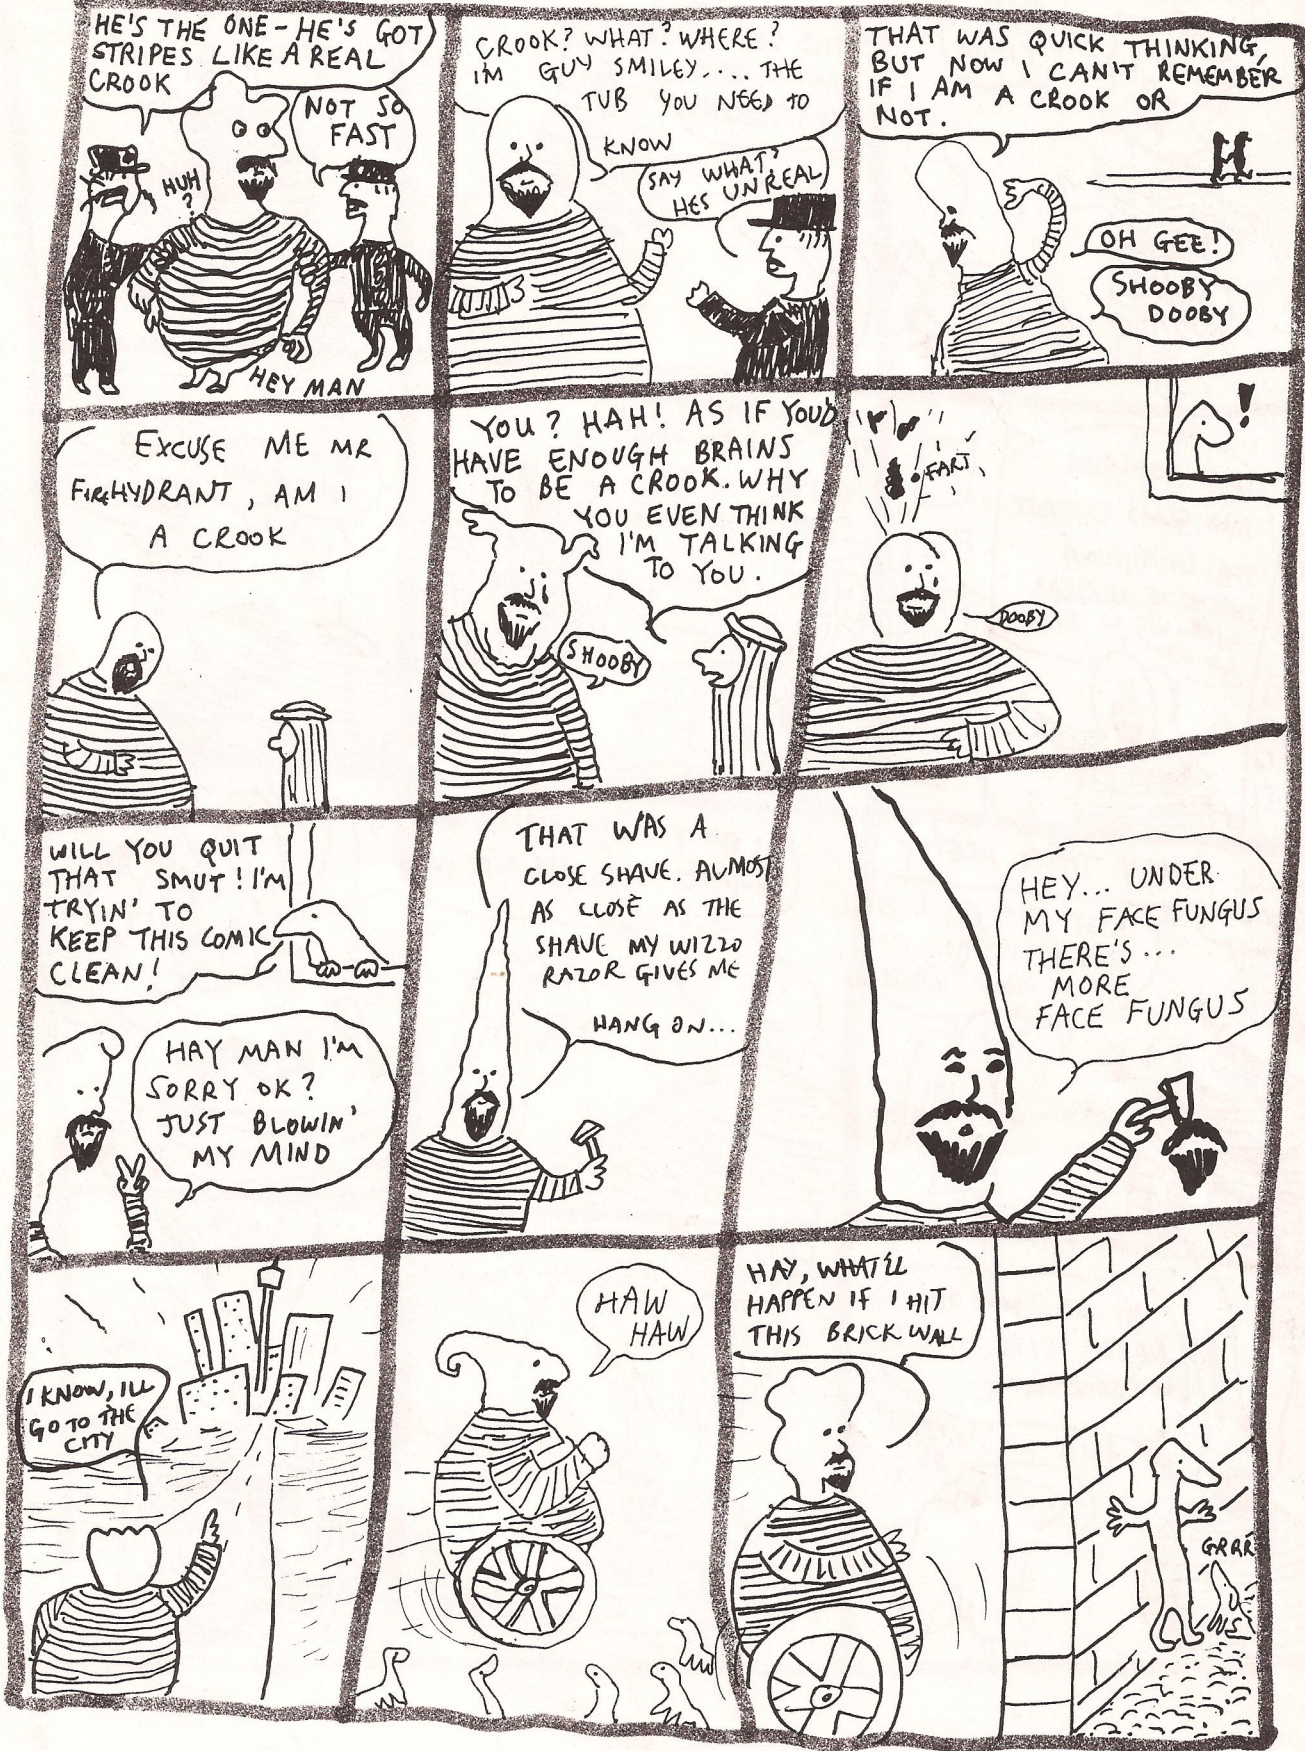 HE'S THE ONE - HE'S GOT
STRIPES LIKE A REAL
CROOK
NOT SO
FAST
HUH
?
HEY MAN
CROOK? WHAT? WHERE?
I'M GUY SMILEY.... THE
TUB YOU NEED TO
KNOW
SAY WHAT?
HES UNREAL
THAT WAS QUICK THINKING,
BUT NOW I CAN'T REMEMBER
IF I AM A CROOK OR
NOT.
OH GEE!
SHOOBY
DOOBY
EXCUSE ME MR
FIREHYDRANT, AM I
A CROOK
YOU? HAH! AS IF YOU'D
HAVE ENOUGH BRAINS
TO BE A CROOK. WHY
YOU EVEN THINK
I'M TALKING
TO YOU.
SHOOBY
FART,
!
DOOBY
WILL YOU QUIT
THAT SMUT! I'M
TRYIN' TO
KEEP THIS COMIC
CLEAN!
HAY MAN I'M
SORRY OK?
JUST BLOWIN'
MY MIND
THAT WAS A
CLOSE SHAVE. ALMOST
AS CLOSE AS THE
SHAVE MY WIZZO
RAZOR GIVES ME
HANG ON...
HEY... UNDER
MY FACE FUNGUS
THERE'S...
MORE
FACE FUNGUS
I KNOW, ILL
GO TO THE
CITY
HAW
HAW
HAY, WHAT'LL
HAPPEN IF I HIT
THIS BRICK WALL
GRRR